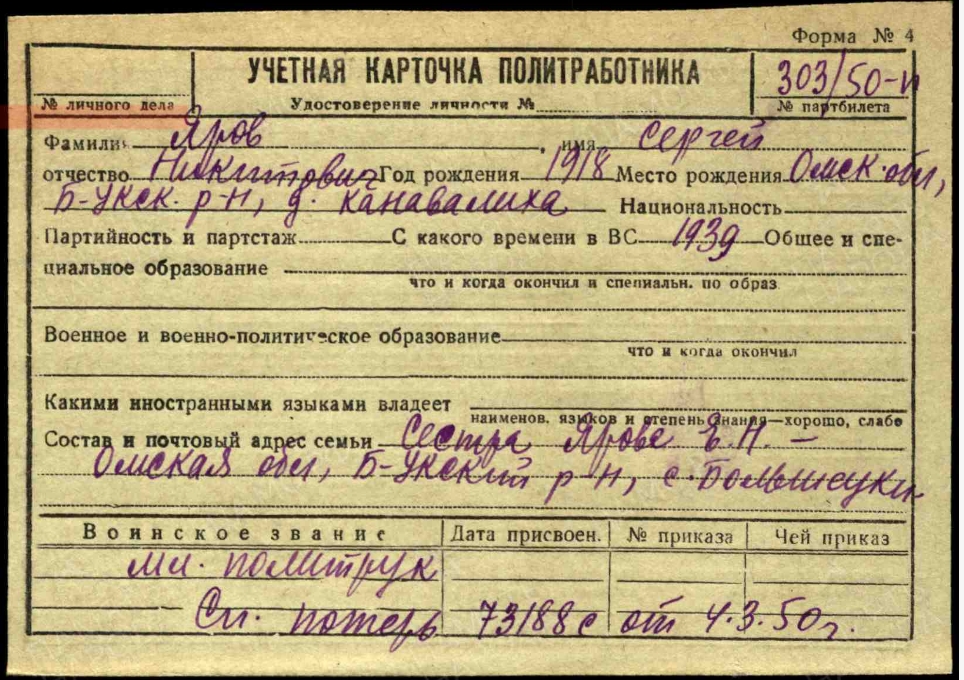 Форма № 4
УЧЕТНАЯ КАРТОЧКА ПОЛИТРАБОТНИКА 303/50-п
№ личного дела Удостоверение личности № № партбилета
Фамилия Яров, имя Сергей
отчество Никитович Год рождения 1918 Место рождения Омск. обл,
Б-Укск. р-н, д. Канавалиха Национальность
Партийность и партстаж С какого времени в ВС 1939 Общее и спе-
циальное образование
что и когда окончил и специальн. по образ.
Военное и военно-политическое образование
что и когда окончил
Какими иностранными языками владеет
наименов. языков и степень знания—хорошо, слабо
Состав и почтовый адрес семьи Сестра Ярова Е.Н. –
Омская обл, Б-Укский р-н, с. Большеуки
Воинское звание Дата присвоен. № приказа Чей приказ
мл. политрук
Сп. потерь 73188с от 4.3.50г.